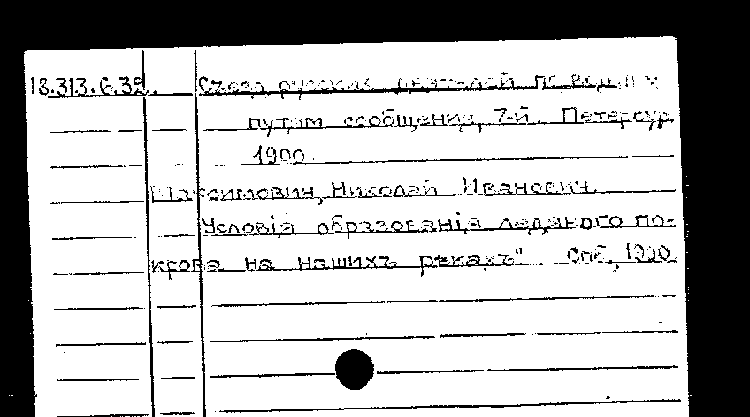 18.313.6.39.
Съезд русских деятелей по водным
путям сообщения, 7-й. Петербур
1900.
Максимович, Николай Иванович.
Условія образованія ледяного по-
крова на нашихъ рекахъ". Спб, 1900.